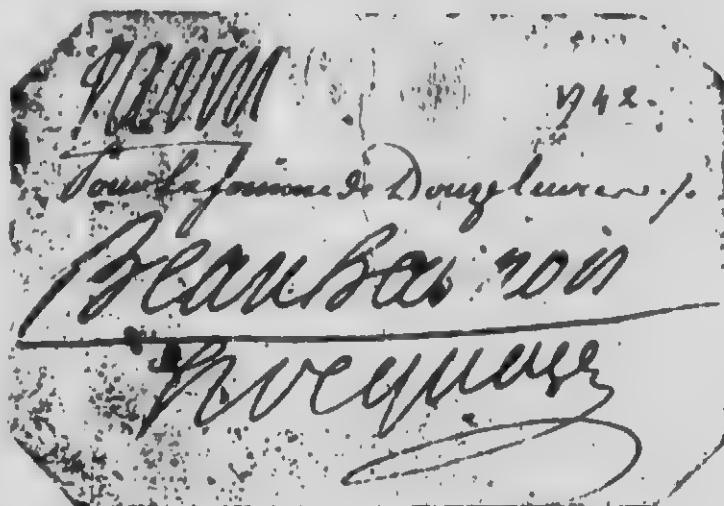 1742.
Pour la somme de Douze livres
Beauharnois
hocquart